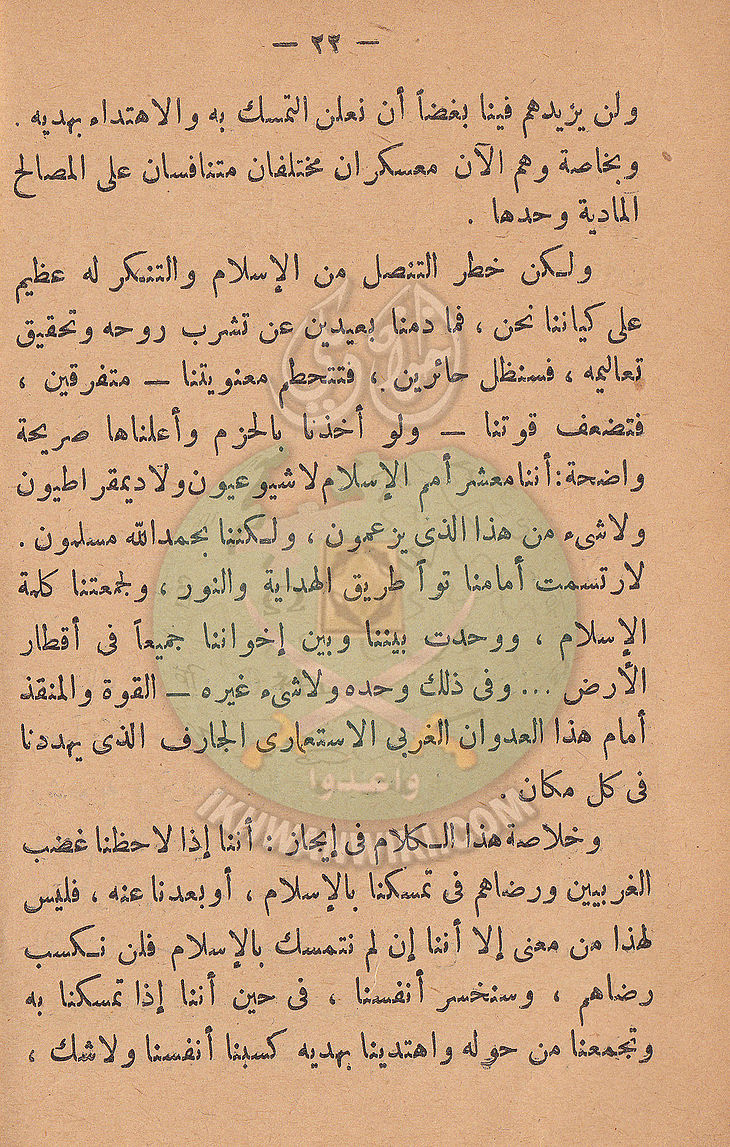 — ٢٣ —
ولن يزيدهم فينا بغضاً أن نعلن التمسك به والاهتداء بهديه .
وبخاصة وهم الآن معسكران مختلفان متنافسان على المصالح
المادية وحدها .
ولكن خطر التنصل من الإسلام والتنكر له عظيم
على كياننا نحن ، فما دمنا بعيدين عن تشرب روحه وتحقيق
تعاليمه ، فسنظل حائرين ، فتتحطم معنويتنا — متفرقين ،
فتضعف قوتنا — ولو أخذنا بالحزم وأعلناها صريحة
واضحة : أننا معشر أمم الإسلام لا شيوعيون ولا ديمقراطيون
ولا شىء من هذا الذى يزعمون ، ولكننا بحمد الله مسلمون .
لارتسمت أمامنا تواً طريق الهداية والنور ، ولجمعتنا كلمة
الإسلام ، ووحدت بيننا وبين إخواننا جميعاً فى أقطار
الأرض ... وفى ذلك وحده ولا شىء غيره — القوة والمنقذ
أمام هذا العدوان الغربى الاستعمارى الجارف الذى يهددنا
فى كل مكان .
وخلاصة هذا الكلام فى إيجاز : أننا إذا لاحظنا غضب
الغربيين ورضاهم فى تمسكنا بالإسلام ، أو بعدنا عنه ، فليس
لهذا من معنى إلا أننا إن لم نتمسك بالإسلام فلن نكسب
رضاهم ، وسنخسر أنفسنا ، فى حين أننا إذا تمسكنا به
وتجمعنا من حوله واهتدينا بهديه كسبنا أنفسنا ولا شك ،
وأعدوا
IKHWANWIKI.COM